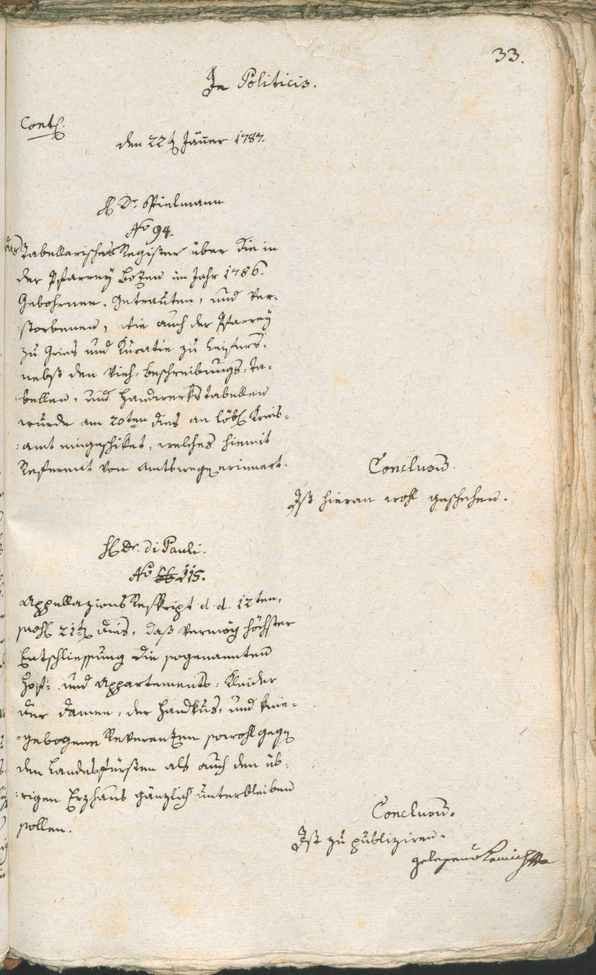 33.
In Politicis.
Cont.
den 22t Jäner 1787.
H Dr. Spielmann
No 94.
Das Tabellarische Register über die in
der Pfarrey Bozen im Jahr 1786.
Gebohrnen, Getrauten, und Ver-
storbenen, wie auch der Pfarrey
zu Gries und Kuratie zu Leifers,
nebst den Vieh-beschreibungs-Ta-
bellen, und Handwerkstabellen
wurde am 20ten dies an löbl Kreis-
amt eingeschiket, welches hiemit
Referent von Amtswegen erinnert.
Conclusum.
Ist hieran wohl geschehen.
H Dr. di Pauli.
No 115.
Appellazions Reskript d. d. 12ten,
prohl 21t dies, daß vermög höchster
Entschliessung die sogenannten
Hof- und Appartements-Kleider
der Damen, der Handkus, und knie-
gebogene Reverenzen sowohl gegen
den Landesfürsten als auch den üb-
rigen Erzhaus gänzlich unterbleiben
sollen.
Conclusum.
Ist zu publiziren.
gelesen